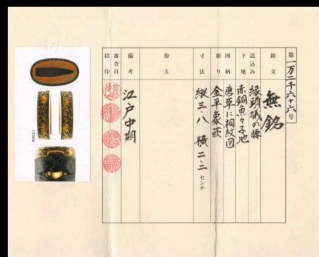 第一万二千六十六号
銘文
無銘
造込み
縁頭 責め鎺
下地
赤銅魚々子地
図柄
唐草に桐紋図
彫り
金平象嵌
寸法
縦三・八 横二・二 センチ
備考
江戸中期
審査員
捺印